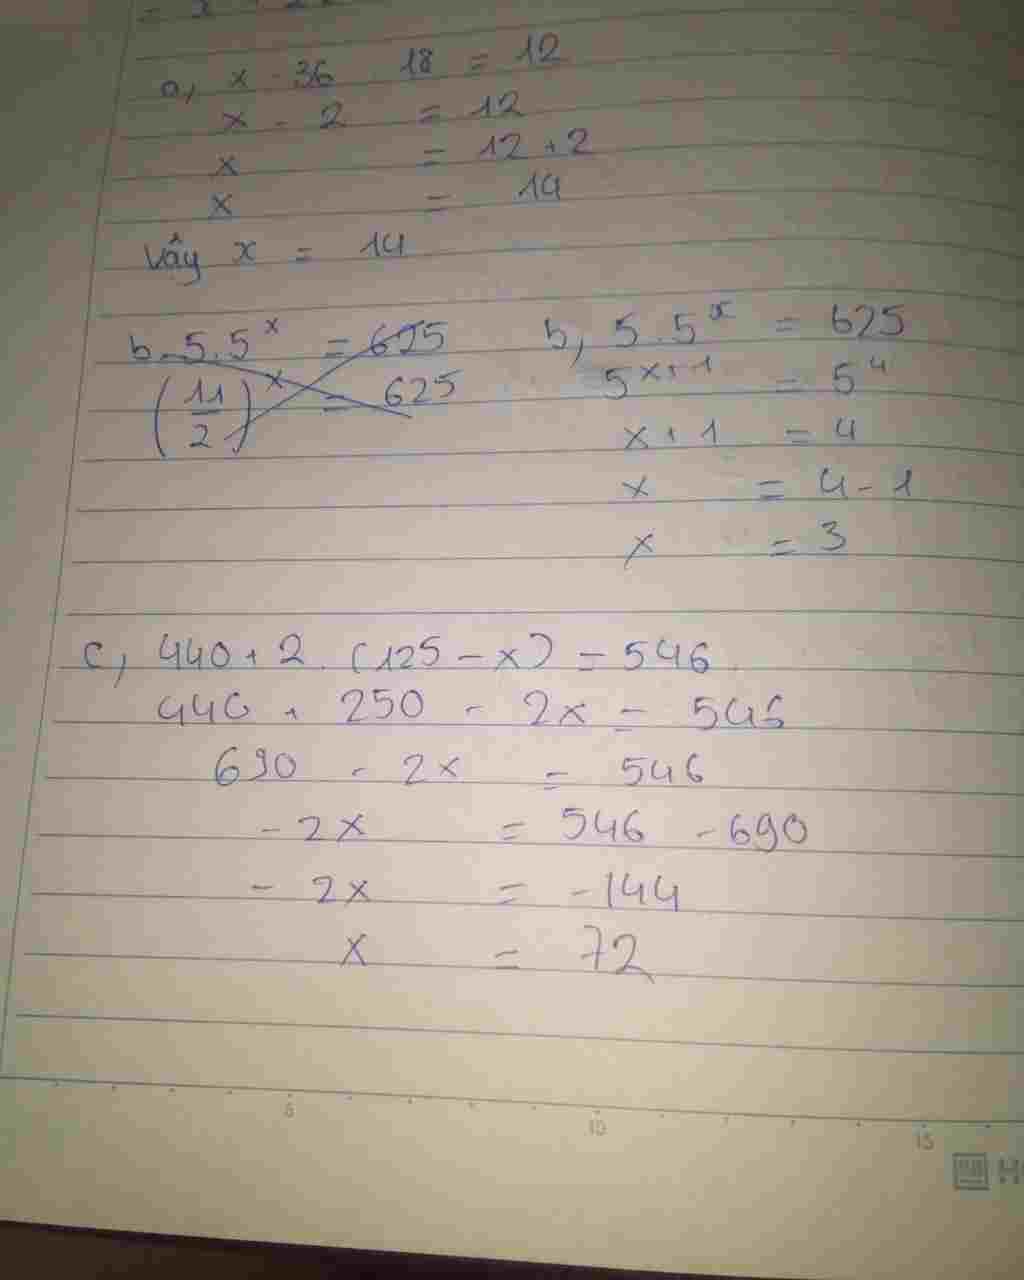 a, x - 36 : 18 = 12
x - 2 = 12
x = 12 + 2
x = 14
Vậy x = 14
b. 5.5^x = 625
(11/2)^x = 625
b, 5.5^x = 625
5^x+1 = 5^4
x + 1 = 4
x = 4 - 1
x = 3
c, 440 + 2 . (125 - x) = 546
440 + 250 - 2x = 546
690 - 2x = 546
- 2x = 546 - 690
- 2x = -144
x = 72
5 10 15